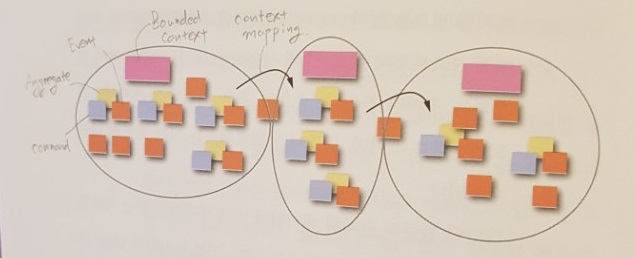 Bounded
context
context
mapping.
Event
Aggregate
Command